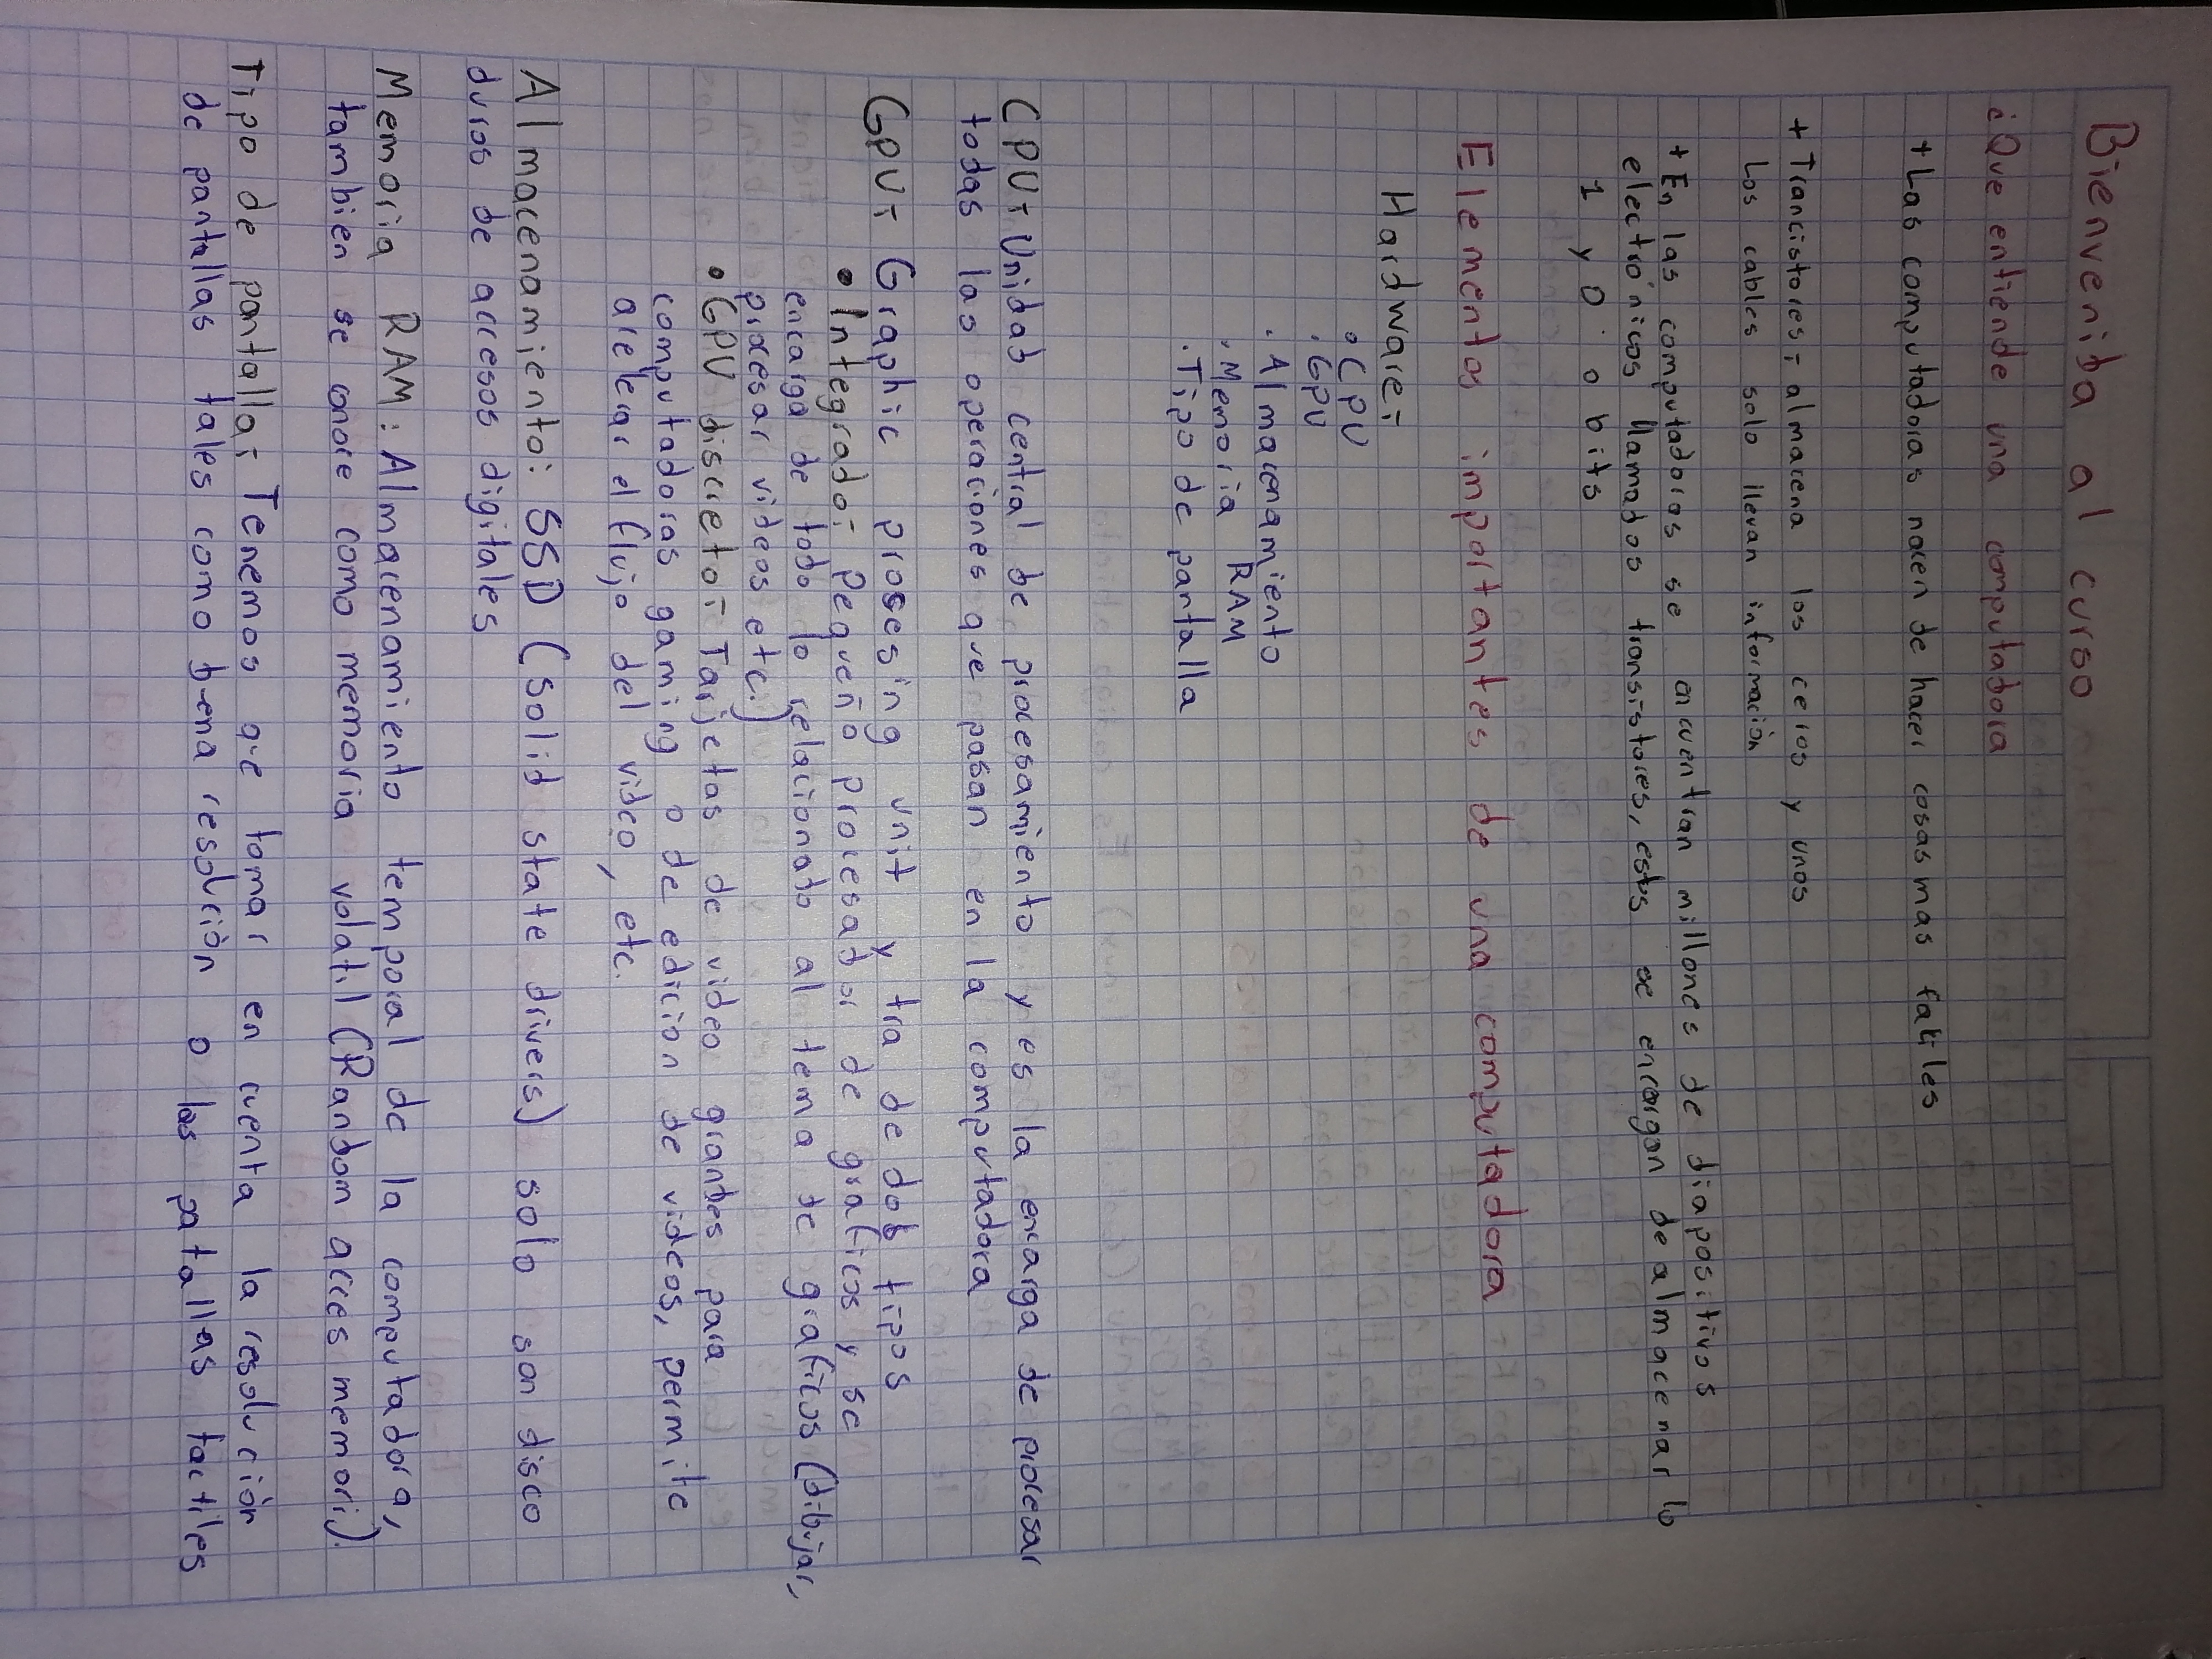 Bienvenida al curso
¿Que entiende una computadora
+ Las computadoras nacen de hacer cosas mas faciles
+ Trancistores: almacena los ceros y unos
Los cables solo llevan información
+ En las computadoras se encuentran millones de diapositivos
electrónicos llamados transistores, estos se encargan de almacenar lo
1 y 0 o bits
Elementos importantes de una computadora
Hardware:
• CPU
• GPU
• Almacenamiento
• Memoria RAM
• Tipo de pantalla
CPU: Unidad central de procesamiento y es la encarga de procesar
todas las operaciones que pasan en la computadora
GPU: Graphic procesing unit y tra de dos tipos
• Integrado: Pequeño procesador de graficos y se
encarga de todo lo relacionado al tema de graficos (dibujar,
procesar videos etc.)
• GPU discreto: Tarjetas de video grandes para
computadoras gaming o de edicion de videos, permite
acelerar el flujo del video, etc.
Almacenamiento: SSD (solid state drivers) solo son disco
duros de accesos digitales
Memoria RAM: Almacenamiento temporal de la computadora,
tambien se conoce como memoria volatil (Random acces memori).
Tipo de pantalla: Tenemos que tomar en cuenta la resolución
de pantallas tales como buena resolución o las patallas tactiles